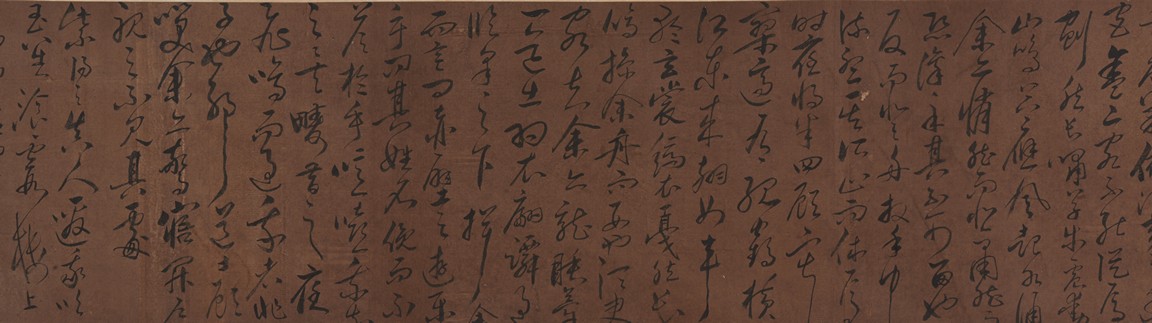 宮蓋二客不能從焉
劃然長嘯草木震動
山鳴谷應風起水涌
余亦悄然而悲肅然而
恐凜乎其不可留也
反而登舟放乎中
流聽其所止而休焉
時夜將半四顧寂
寥適有孤鶴橫
江東來翅如車
輪玄裳縞衣戛然長
鳴掠余舟而西也須臾
客去余亦就睡夢
一道士羽衣蹁躚過
臨皋之下揖余
而言曰赤壁之遊樂
乎問其姓名俛而不
答嗚呼噫嘻我知
之矣疇昔之夜
飛鳴而過我者非
子也耶道士顧
笑余亦驚寤開戶
視之不見其處
紫陽之真人邀我吹
玉笙飡霞樓上